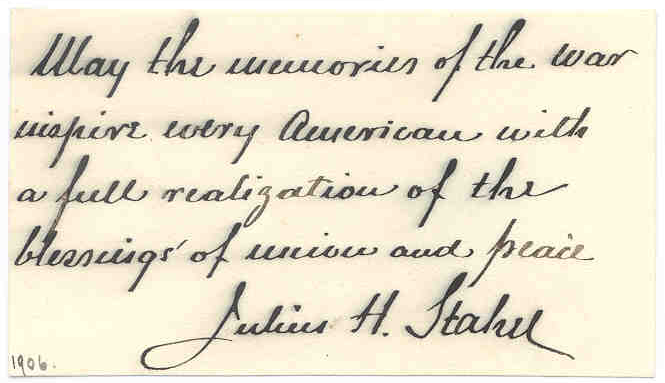 May the memories of the war
inspire every American with
a full realization of the
blessings of union and peace
Julius H. Stahel
1906.